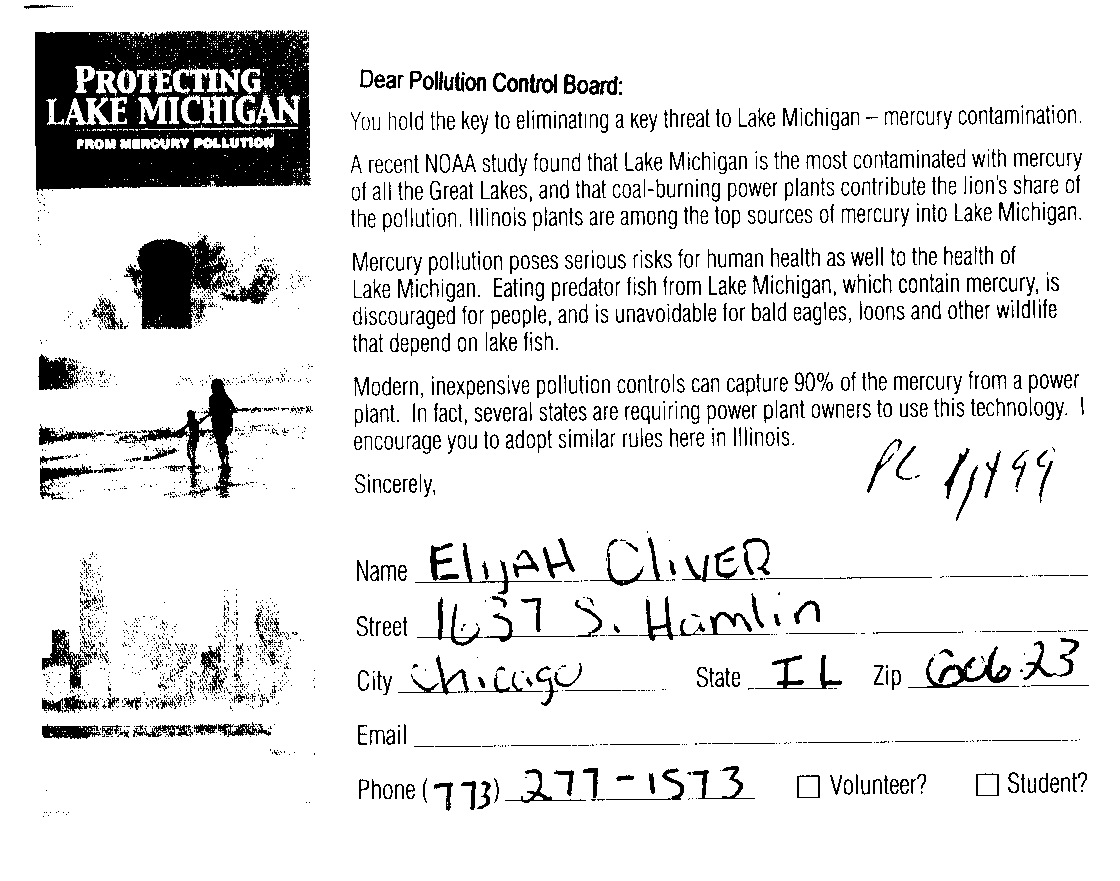 PROTECTING
LAKE MICHIGAN
FROM MERCURY POLLUTION
Dear Pollution Control Board:
You hold the key to eliminating a key threat to Lake Michigan – mercury contamination.
A recent NOAA study found that Lake Michigan is the most contaminated with mercury
of all the Great Lakes, and that coal-burning power plants contribute the lion's share of
the pollution. Illinois plants are among the top sources of mercury into Lake Michigan.
Mercury pollution poses serious risks for human health as well to the health of
Lake Michigan. Eating predator fish from Lake Michigan, which contain mercury, is
discouraged for people, and is unavoidable for bald eagles, loons and other wildlife
that depend on lake fish.
Modern, inexpensive pollution controls can capture 90% of the mercury from a power
plant. In fact, several states are requiring power plant owners to use this technology. I
encourage you to adopt similar rules here in Illinois.
Sincerely,
PC
Name ElijAH CliVER
Street 1637 S. Hamlin
City Chicago State IL Zip 60623
Email
Phone (773) 277-1573 Volunteer? Student?